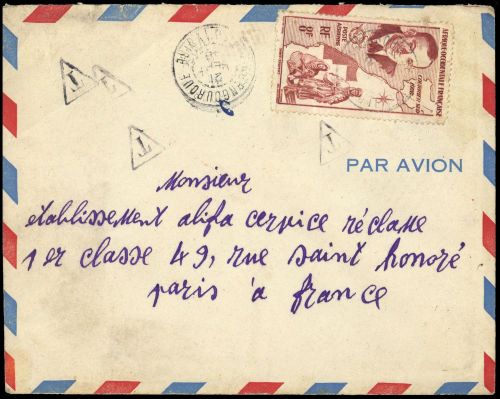 AFRIQUE OCCIDENTALE FRANÇAISE
POSTE AERIENNE
RF
8F
T
T
T
PAR AVION
Monsieur
établissement alifa cervice réclame
1 er classe 49, rue saint honoré
paris à france